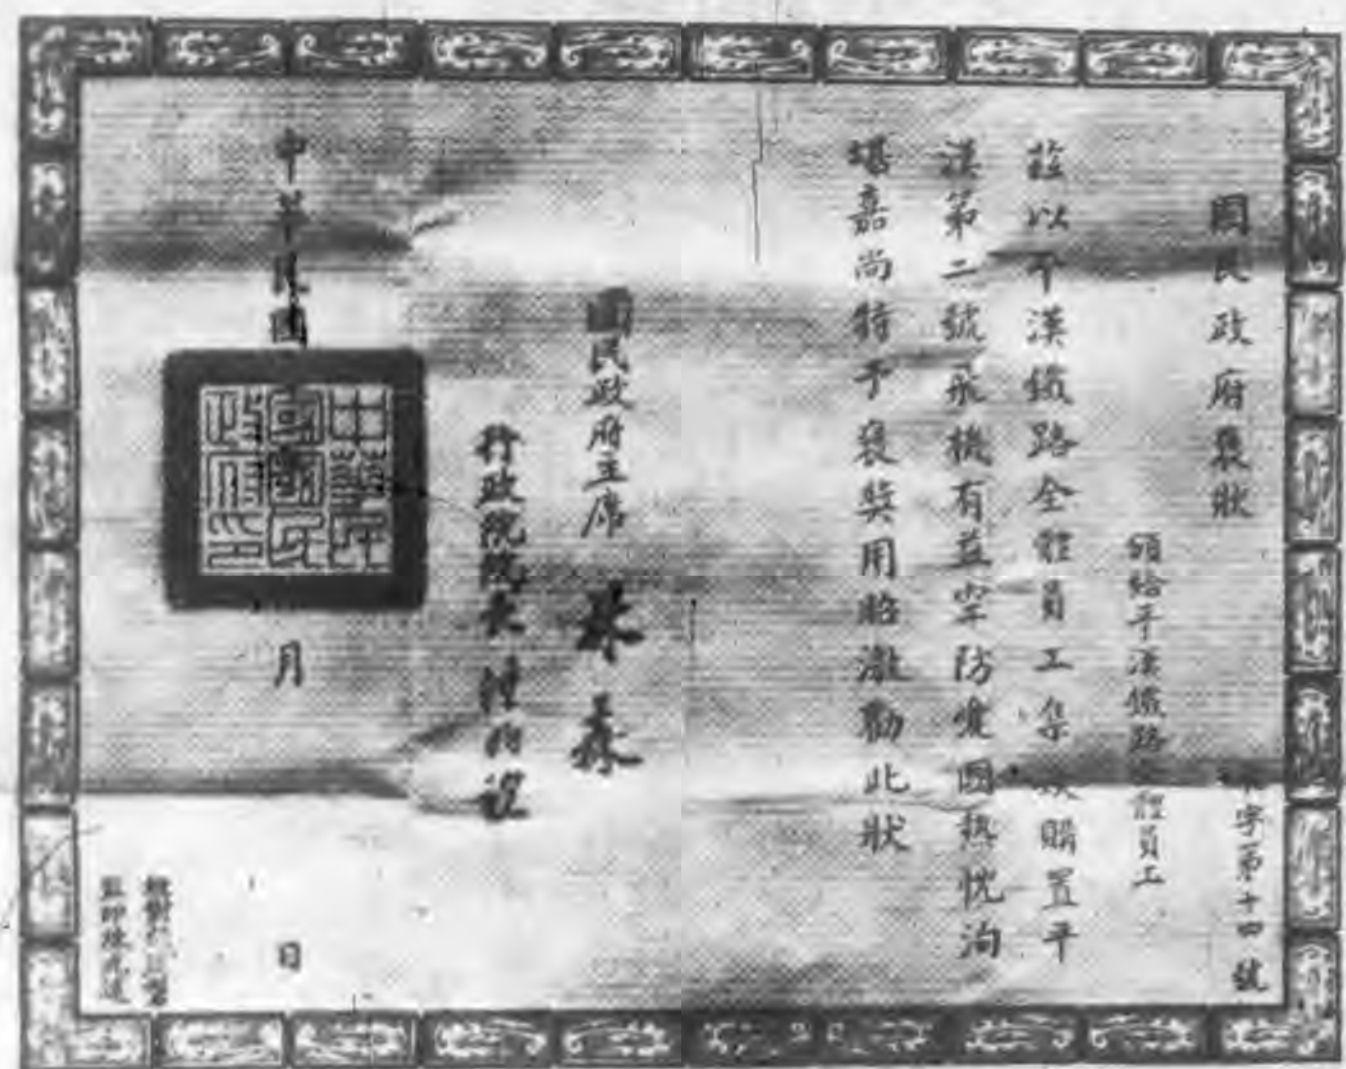 國民政府褒狀
字第十四號
頒給平漢鐵路 體員工
茲以平漢鐵路全體員工集 購置平
漢第二號飛機有益空防愛國熱忱洵
堪嘉尚特予褒獎用昭激勸此狀
國民政府主席 林森
行政院院長 汪
中華民國
中華民國國民政府之印
月
日
監印